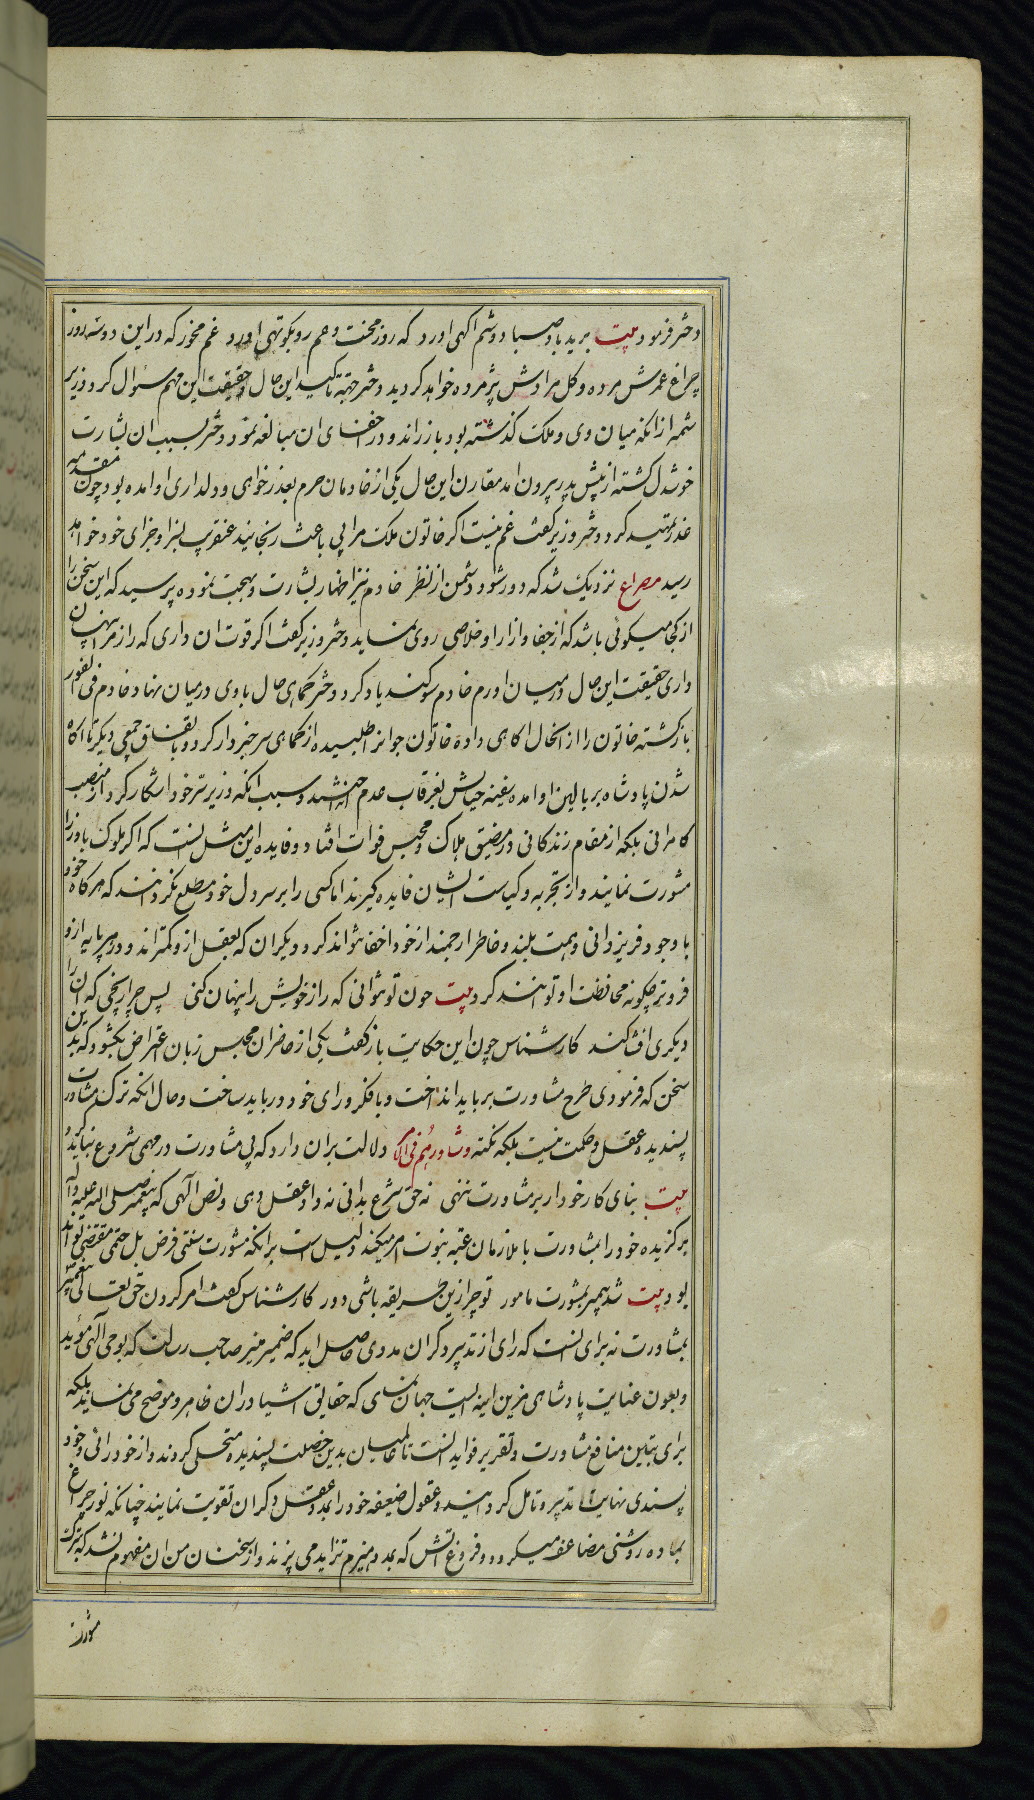 دختر فرمود بیت برید باد صبا دوشم اگهی اورد که روز محنت و غم رو بکوتهی اورد غم مخور که در این دو سه روز
چراغ عمرش مرده و کل مرادش پژمرده خواهد کردید دختر جهة تاکید این حال و حقیقت این مهم سئوال کرد وزیر
شمه از انکه میان وی و ملک کذشته بود باز راند و در اخفای ان مبالغه نمود دختر بسبب ان بشارت
خوشدل کشته از پیش پدر بیرون امد مقارن این حال یکی از خادمان حرم بعذر خواهی و دلداری او امده بود چون مقدمه
عذر تمهید کرد دختر وزیر کفت غم نیست اکر خاتون ملک مرا بی باعث رنجانید عنقریب بسزا و جزای خود خواهد
رسید مصراع نزدیک شد که دور شود دشمن از نظر خادم نیز اظهار بشارت و بهجت نموده پرسید که این سخن را
از کجا میکوئی باشد که از جفا و ازار او خلاصی روی نماید دختر وزیر کفت اکر قوت ان داری که راز مرا پنهان
داری حقیقت این حال در میان اورم خادم سوکند یاد کرد و دختر حکمای حال با وی در میان نهاد خادم فی الفور
بازکشته خاتون را از انحال اکاهی داده خاتون جوانرا طلبیده از حکمای سر خبردار کرد و باتفاق جمعی دیکر تا اکاه
شدن پادشاه بر بالین او امده سفینه حیاتش بغرقاب عدم انداختند و سبب انکه وزیر سر خود اشکار کرد از منصب
کامرانی بلکه از مقام زندکانی در مضیق هلاک و محبس فوات افتاد و فایده این مثل انست که اکر ملوک با وزرا
مشورت نمایند و از تجربه و کیاست ایشان فایده کیرند اما کسی را بر سر دل خود مطلع نکردانند که هرکاه خود
با وجود فر یزدانی و همت بلند و خاطر ارجمند از خود اخفا نتواند کرد دیکران که بعقل از و کمترند و در مرپایه ازو
فروتر چکونه محافظت او توانند کرد بیت چون تو نتوانی که راز خویش را پنهان کنی پس چرا رنجی که ان را
دیکری افشا کند کارشناس چون این حکایت باز کفت یکی از حاضران مجلس زبان اعتراض بکشود که بدین
سخن که فرمودی طرح مشاورت بر باید انداخت و با فکر و رای خود در باید ساخت و حال انکه ترک مشاورت
پسندیده عقل و حکمت نیست بلکه نکته و شاورهم فی الامر دلالت بران دارد که بی مشاورت در مهمی شروع نباید کرد
بیت بنای کار خود ار بر مشاورت ننهی نه حق شرع بدانی نه داد عقل دهی و نص الهی که پیغمبر صلی الله علیه و آله
برکزیده خود را بمشاورت با ملازمان عتبه نبوت امر میکند دلیل است برانکه مشورت سنتی فرض بل حتمی مقتضی تواند
بود بیت شد پیمبر بمشورت مامور تو چرا زین طریقه باشی دور کارشناس کفت امر کردن حق تعالی پیغمبر
بمشاورت نه برای انست که رای از تدبیر دکران مددی حاصل اید که ضمیر منیر صاحب رسالت که بوحی الهی مؤید
و بعون عنایت پادشاهی مزین اینه ایست جهان نمای که حقایق اشیا دران ظاهر و موضح می نماید بلکه
برای تبیین منافع مشاورت و تقریر فواید انست تا عالمیان بدین خصلت پسندیده متحلی کردند و از خود رائی و خود
پسندی نهایت تدبیر و تامل کردانیده و عقول ضعیفه خود را بمدد عقل دکران تقویت نمایند چنانکه نور چراغ
بماده روشنی مضاعف میکردد و فروغ اتش که بمدد هیزم تزاید می پذیرد و از سخنان من ان مفهوم نشد که ترک
مشورت